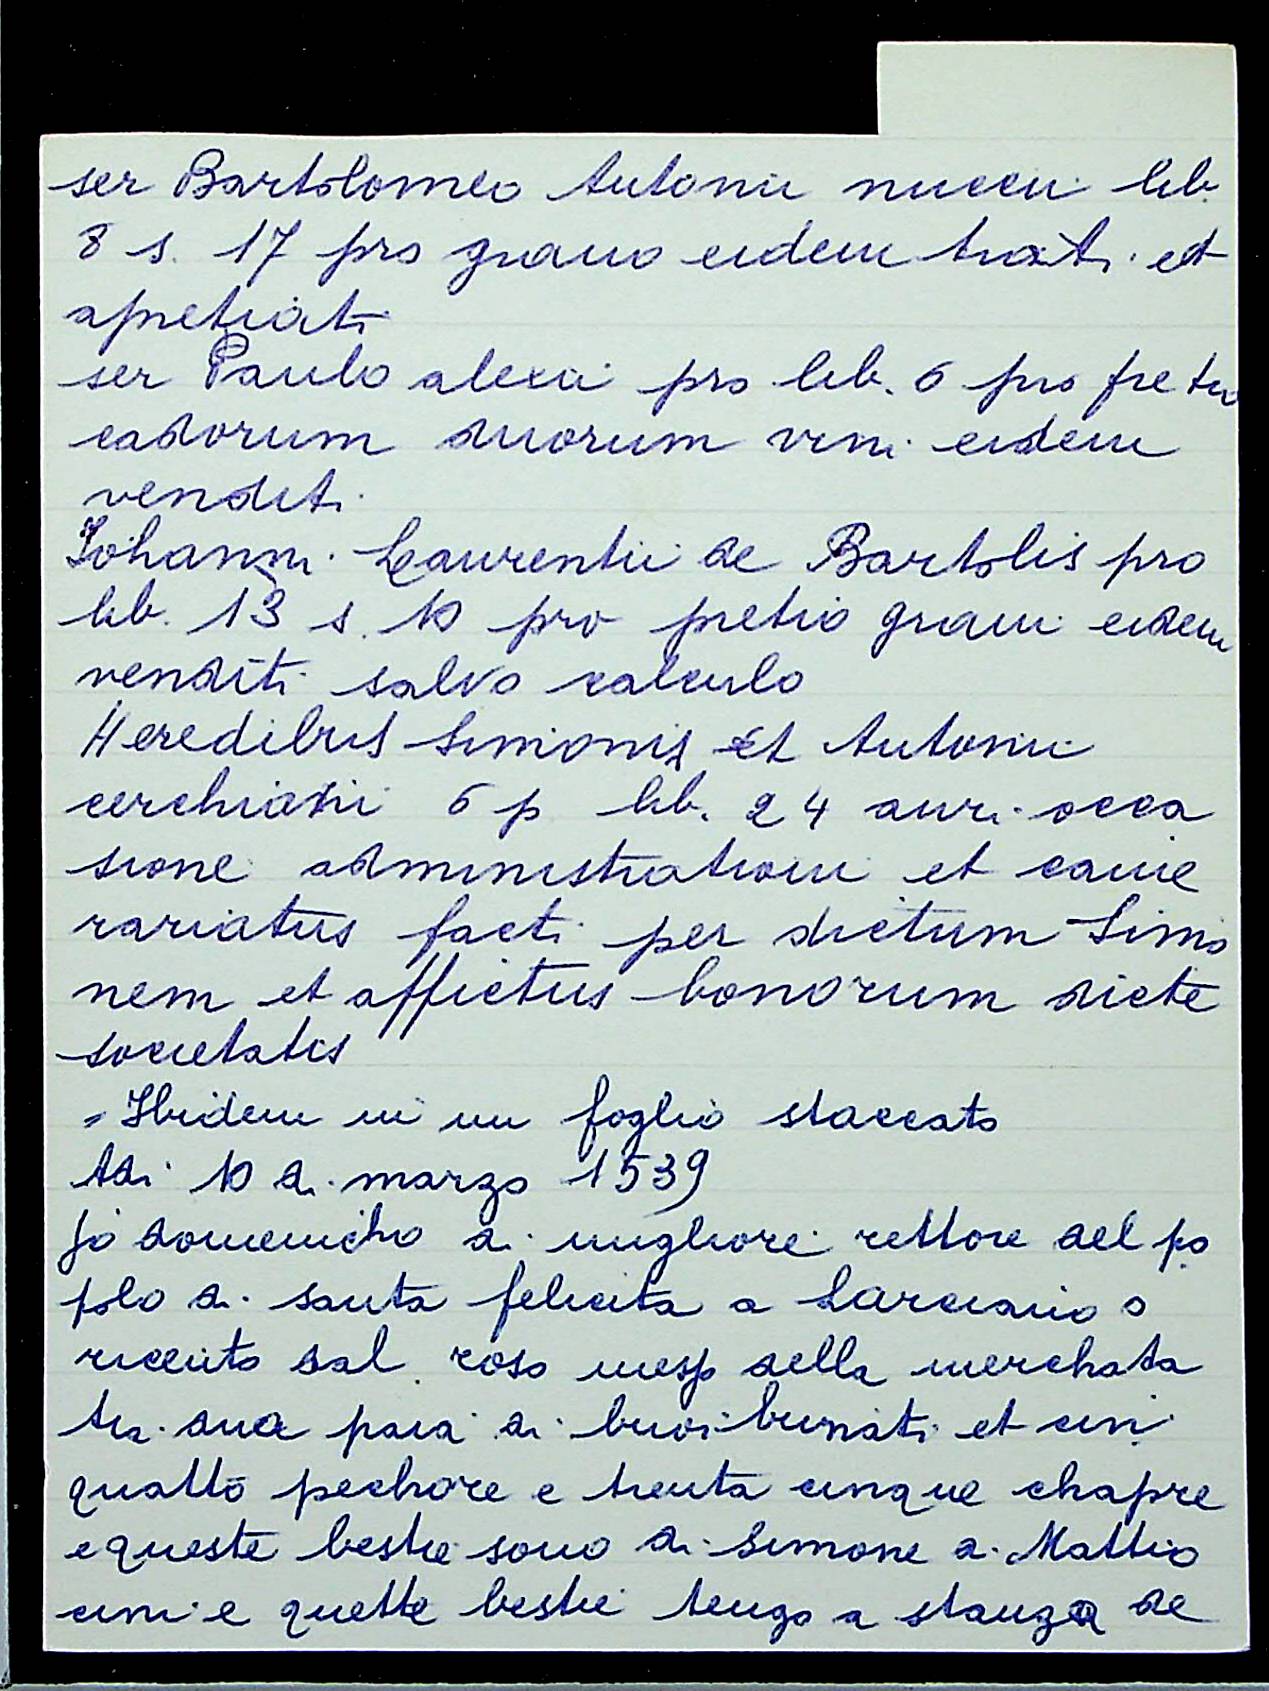 ser Bartolomeo Antonii nuccii lib.
8 s. 17 pro grano eidem trati et
apretiati
ser Paulo alexii pro lib. 6 pro pretio
cadorum duorum vini eidem
venditi
Johanni Laurentii de Bartolis pro
lib. 13 s. 10 pro pretio grani eidem
venditi salvo calculo
Heredibus Simonis et Antonii
cerchiarii 6 p lib. 24 auri occa
sione administrationi et came
rariatus facti per dictum Simo
nem et affictus bonorum dicte
societatis
= Ibidem in un foglio staccato
Adi 10 di marzo 1539
Jo domenicho di migliore rettore del po
polo di santa felicita a Larciano o
riceuto dal roso mesp della merchata
tia dua paia di buoi
quatto pechore e trenta cinque chapre
e queste bestie sono di Simone di Mattio
cini e quette bestie tengo a stanza de